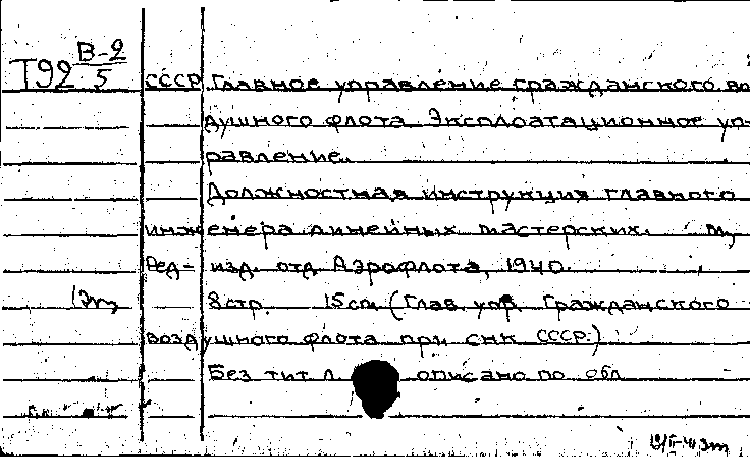 Т92 В-2/5
СССР Главное управление гражданского во
душного флота. Эксплоатационное уп-
равление.
Должностная инструкция главного
инженера линейных мастерских. М,
Ред- изд. отд. Аэрофлота, 1940.
1 эк 8 стр. 15 см. (Глав. упр. Гражданского
воздушного флота при СНК СССР.)
Без тит. л. описано по обл.